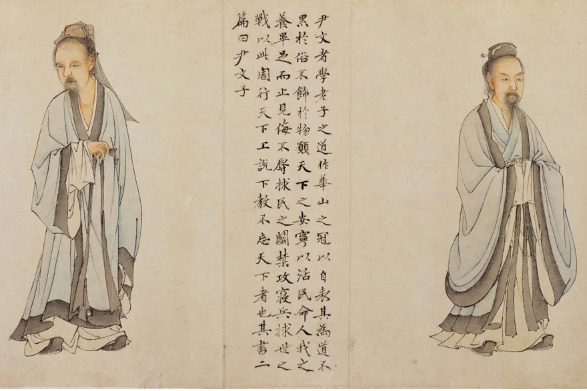 尹文者學老子之道作華山之冠以自表其為道不
累於俗不飾於物願天下之安寧以活民命人我之
養畢足而止見侮不辱捄民之鬬禁攻寢兵捄世之
戰以此周行天下上說下教不忘天下者也其書二
篇曰尹文子